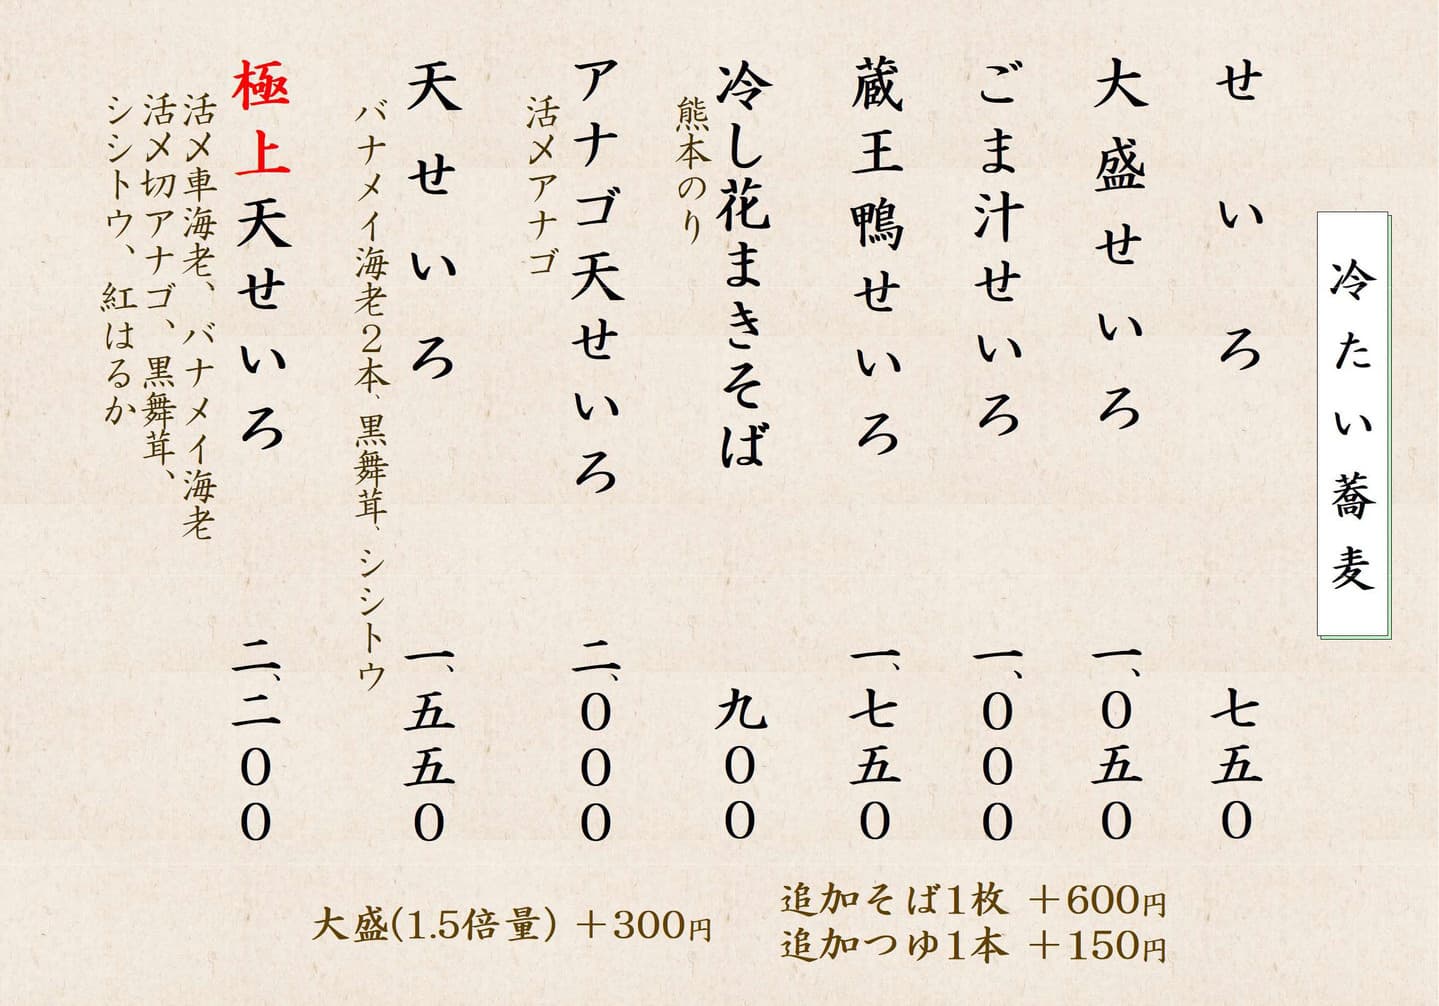 冷たい蕎麦
せいろ 七五〇
大盛せいろ 一、〇五〇
ごま汁せいろ 一、〇〇〇
蔵王鴨せいろ 一、七五〇
冷し花まきそば 九〇〇
熊本のり
アナゴ天せいろ 二、〇〇〇
活〆アナゴ
天せいろ 一、五五〇
バナメイ海老２本、黒舞茸、シシトウ
極上天せいろ 二、二〇〇
活〆車海老、バナメイ海老
活〆切アナゴ、黒舞茸、
シシトウ、紅はるか
追加そば1枚 ＋600円
追加つゆ1本 ＋150円
大盛(1.5倍量) ＋300円